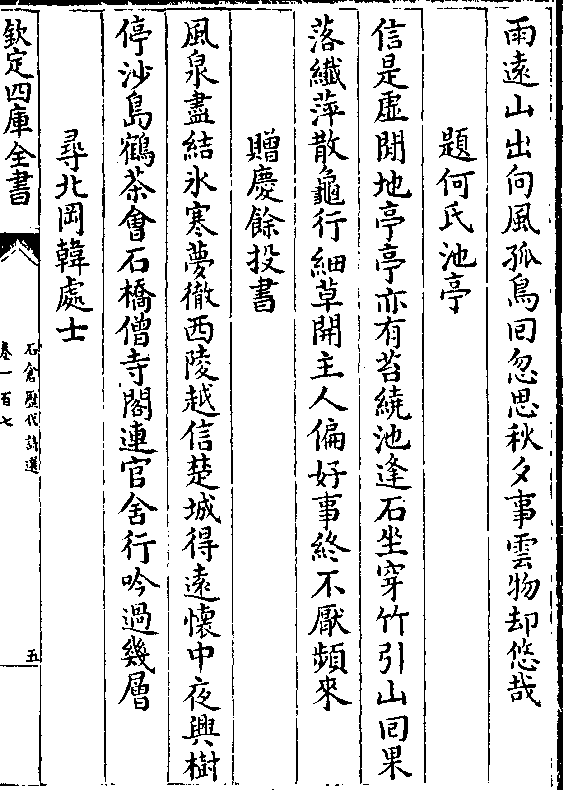 雨遠山出向風孤鳥回忽思秋夕事雲物却悠哉
題何氏池亭
信是虛閒地亭亭亦有苔繞池逢石坐穿竹引山回果
落纖萍散龜行細草開主人偏好事終不厭頻來
贈慶餘投書
風泉盡結氷寒夢徹西陵越信楚城得遠懷中夜興樹
停沙島鶴茶會石橋僧寺閣連官舍行吟過幾層
尋北岡韓處士
欽定四庫全書
石倉歷代詩選
卷一百七
五